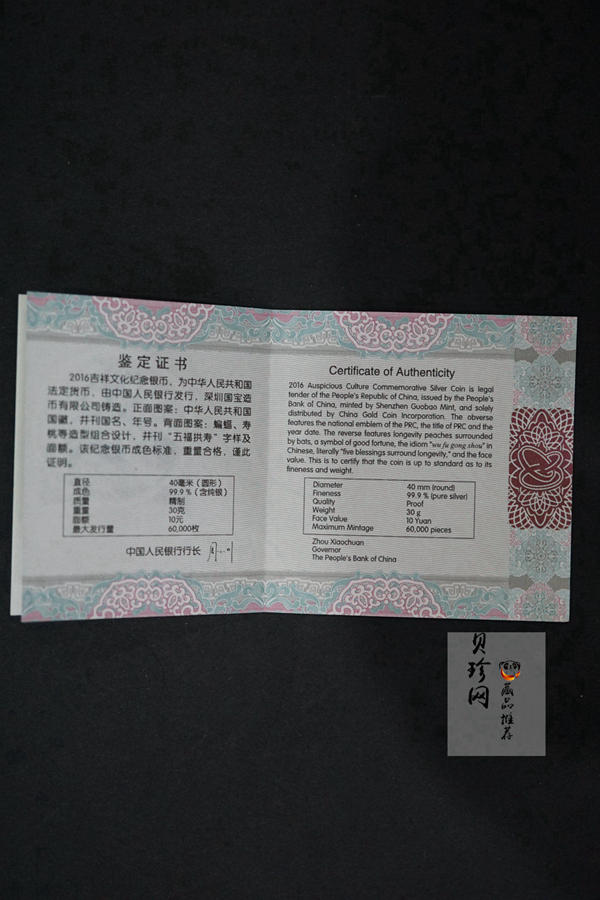 鉴定证书
2016吉祥文化纪念银币，为中华人民共和国
法定货币，由中国人民银行发行，深圳国宝造
币有限公司铸造。正面图案：中华人民共和国
国徽，并刊国名、年号。背面图案：蝙蝠、寿
桃等造型组合设计，并刊“五福拱寿”字样及
面额。该纪念银币成色标准，重量合格，谨此
证明。
直径 40毫米（圆形）
成色 99.9％（含纯银）
质量 精制
重量 30克
面额 10元
最大发行量 60,000枚
中国人民银行行长
Certificate of Authenticity
2016 Auspicious Culture Commemorative Silver Coin is legal
tender of the People's Republic of China, issued by the People's
Bank of China, minted by Shenzhen Guobao Mint, and solely
distributed by China Gold Coin Incorporation. The obverse
features the national emblem of the PRC, the title of PRC and the
year date. The reverse features longevity peaches surrounded
by bats, a symbol of good fortune, the idiom "wu fu gong shou" in
Chinese, literally "five blessings surround longevity," and the face
value. This is to certify that the coin is up to standard as to its
fineness and weight.
Diameter 40 mm (round)
Fineness 99.9 % (pure silver)
Quality Proof
Weight 30 g
Face Value 10 Yuan
Maximum Mintage 60,000 pieces
Zhou Xiaochuan
Governor
The People's Bank of China
贝珍网
藏品推荐